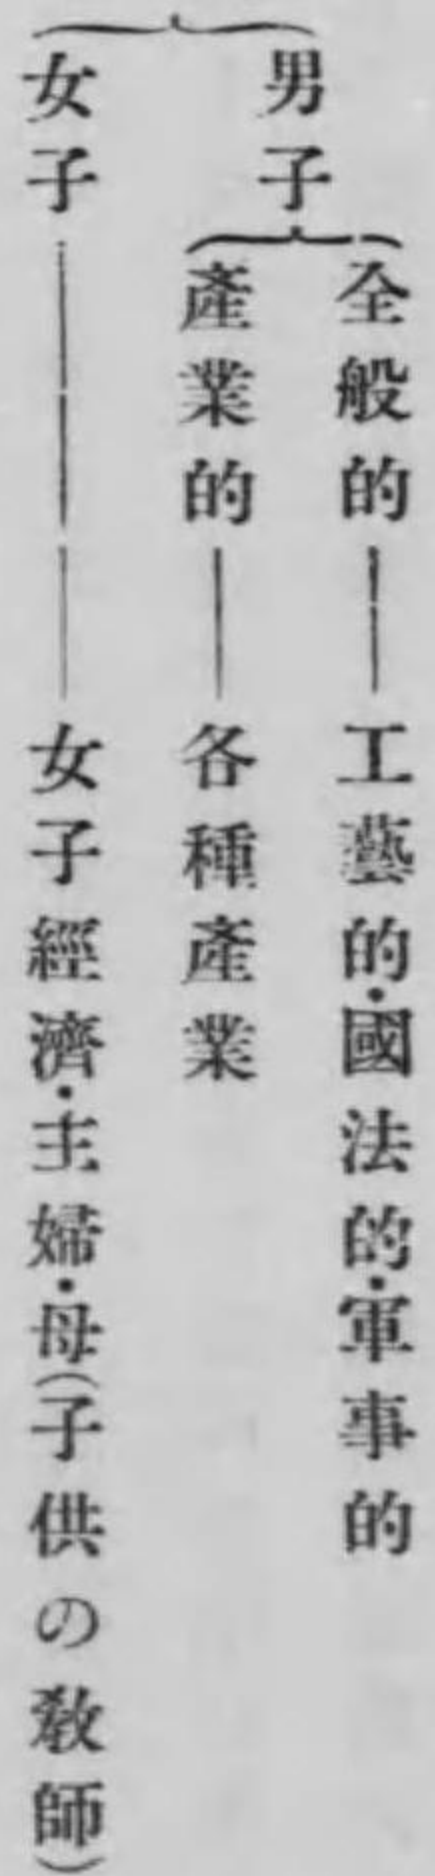 男子
全般的──工藝的・國法的・軍事的
産業的──各種産業
女子────女子經濟・主婦・母(子供の敎師)